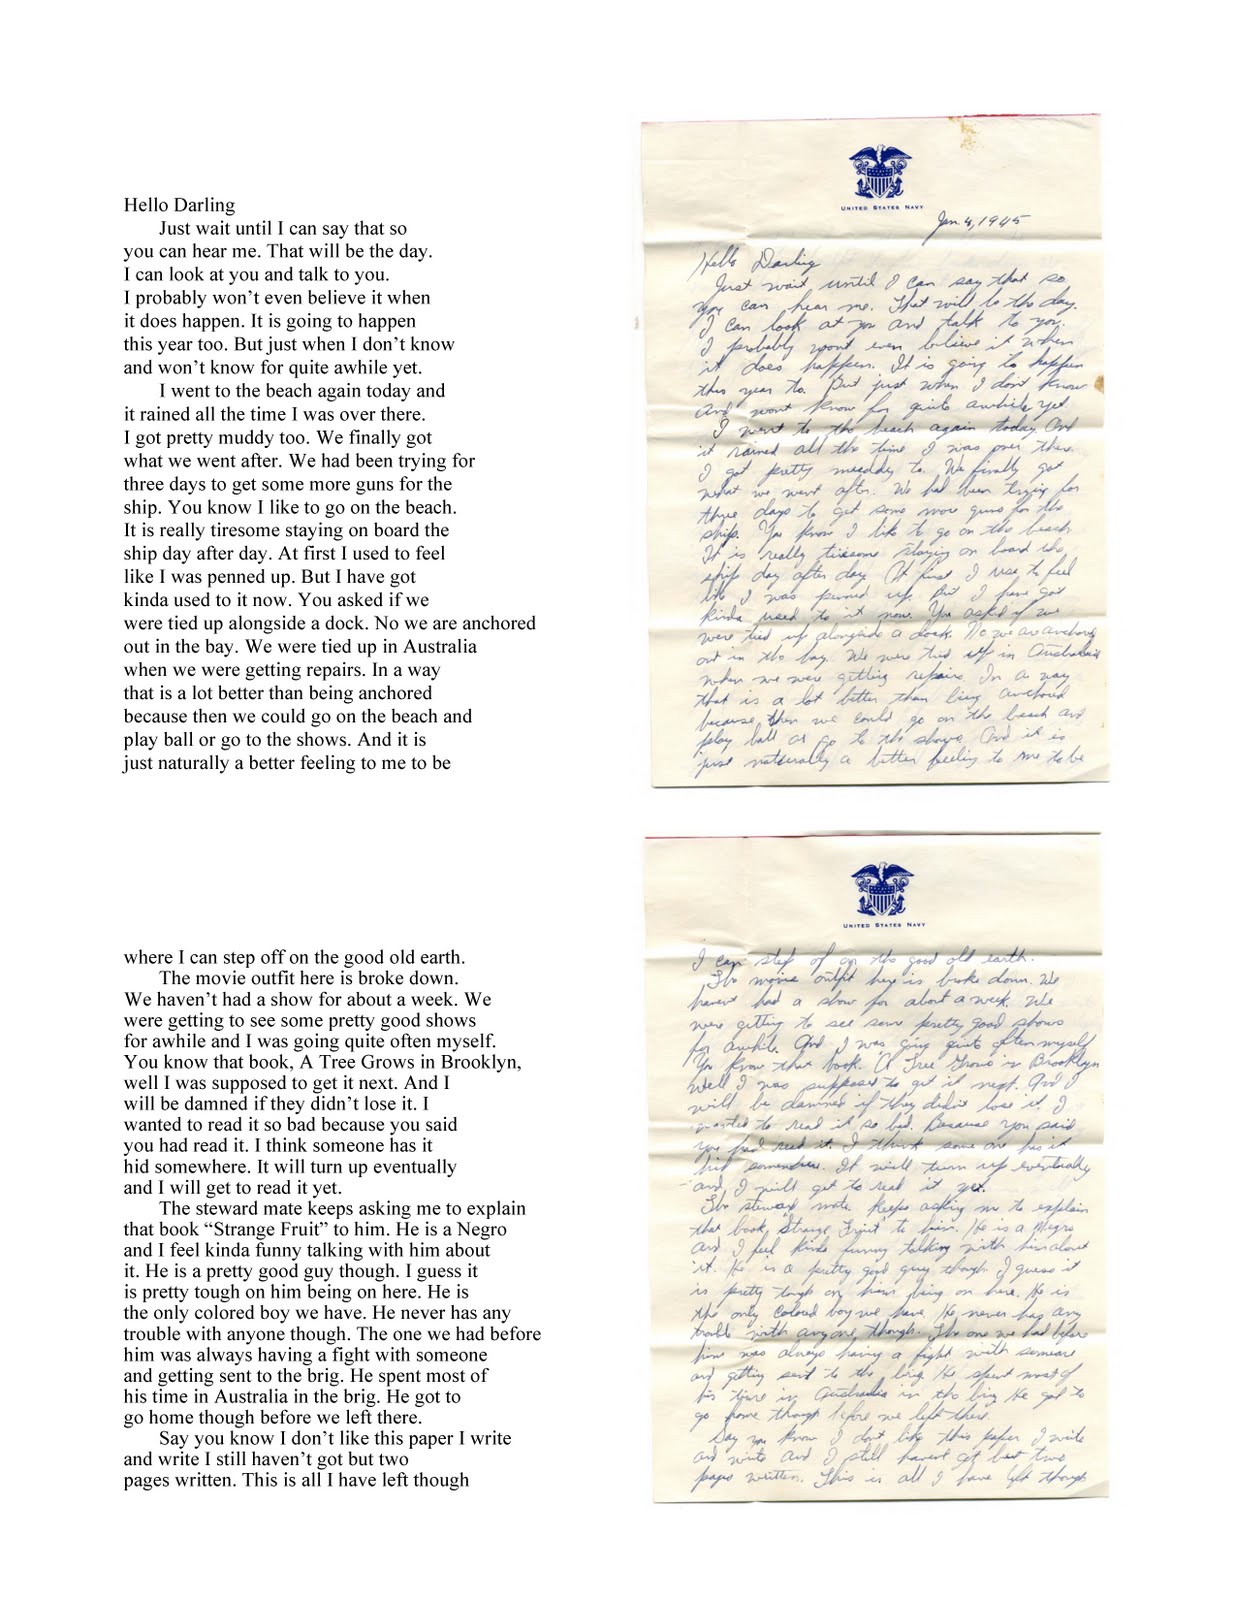 Hello Darling
Just wait until I can say that so
you can hear me. That will be the day.
I can look at you and talk to you.
I probably won’t even believe it when
it does happen. It is going to happen
this year too. But just when I don’t know
and won’t know for quite awhile yet.
I went to the beach again today and
it rained all the time I was over there.
I got pretty muddy too. We finally got
what we went after. We had been trying for
three days to get some more guns for the
ship. You know I like to go on the beach.
It is really tiresome staying on board the
ship day after day. At first I used to feel
like I was penned up. But I have got
kinda used to it now. You asked if we
were tied up alongside a dock. No we are anchored
out in the bay. We were tied up in Australia
when we were getting repairs. In a way
that is a lot better than being anchored
because then we could go on the beach and
play ball or go to the shows. And it is
just naturally a better feeling to me to be
UNITED STATES NAVY
Jan. 4, 1945
Hello Darling
Just wait until I can say that so
you can hear me. That will be the day.
I can look at you and talk to you.
I probably wont even believe it when
it does happen. It is going to happen
this year to. But just when I don't know
and wont know for quite awhile yet.
I went to the beach again today and
it rained all the time I was over there.
I got pretty muddy to. We finally got
what we went after. We had been trying for
three days to get some more guns for the
ship. You know I like to go on the beach
It is really tiresome staying on board the
ship day after day. At first I use to feel
like I was penned up. But I have got
kinda used to it now. You asked if we
were tied up alongside a dock. No we are anchored
out in the bay. We were tied up in Australia
when we were getting repairs. In a way
that is a lot better than being anchored
because then we could go on the beach and
play ball or go to the shows. And it is
just naturally a better feeling to me to be
where I can step off on the good old earth.
The movie outfit here is broke down.
We haven’t had a show for about a week. We
were getting to see some pretty good shows
for awhile and I was going quite often myself.
You know that book, A Tree Grows in Brooklyn,
well I was supposed to get it next. And I
will be damned if they didn’t lose it. I
wanted to read it so bad because you said
you had read it. I think someone has it
hid somewhere. It will turn up eventually
and I will get to read it yet.
The steward mate keeps asking me to explain
that book “Strange Fruit” to him. He is a Negro
and I feel kinda funny talking with him about
it. He is a pretty good guy though. I guess it
is pretty tough on him being on here. He is
the only colored boy we have. He never has any
trouble with anyone though. The one we had before
him was always having a fight with someone
and getting sent to the brig. He spent most of
his time in Australia in the brig. He got to
go home though before we left there.
Say you know I don’t like this paper I write
and write I still haven’t got but two
pages written. This is all I have left though
UNITED STATES NAVY
I can step of on the good old earth.
The movie outfit here is broke down. We
havent had a show for about a week. We
were getting to see some pretty good shows
for awhile. And I was going quite often myself
You know that book. A Tree Grows in Brooklyn
well I was supposed to get it next. And I
will be damned if they didn't lose it. I
wanted to read it so bad. Because you said
you had read it. I think some one has it
hid somewhere. It will turn up eventually
and I will get to read it yet.
The steward mate keeps asking me to explain
that book, "Strange Fruit" to him. He is a Negro
and I feel kinda funny talking with him about
it. He is a pretty good guy though. I guess it
is pretty tough on him being on here. He is
the only colored boy we have. He never has any
trouble with anyone, though. The one we had before
him was always having a fight with someone
and getting sent to the brig. He spent most of
his time in Australia in the brig. He got to
go home though before we left there.
Say you know I dont like this paper I write
and write and I still havent got but two
pages written. This is all I have left though